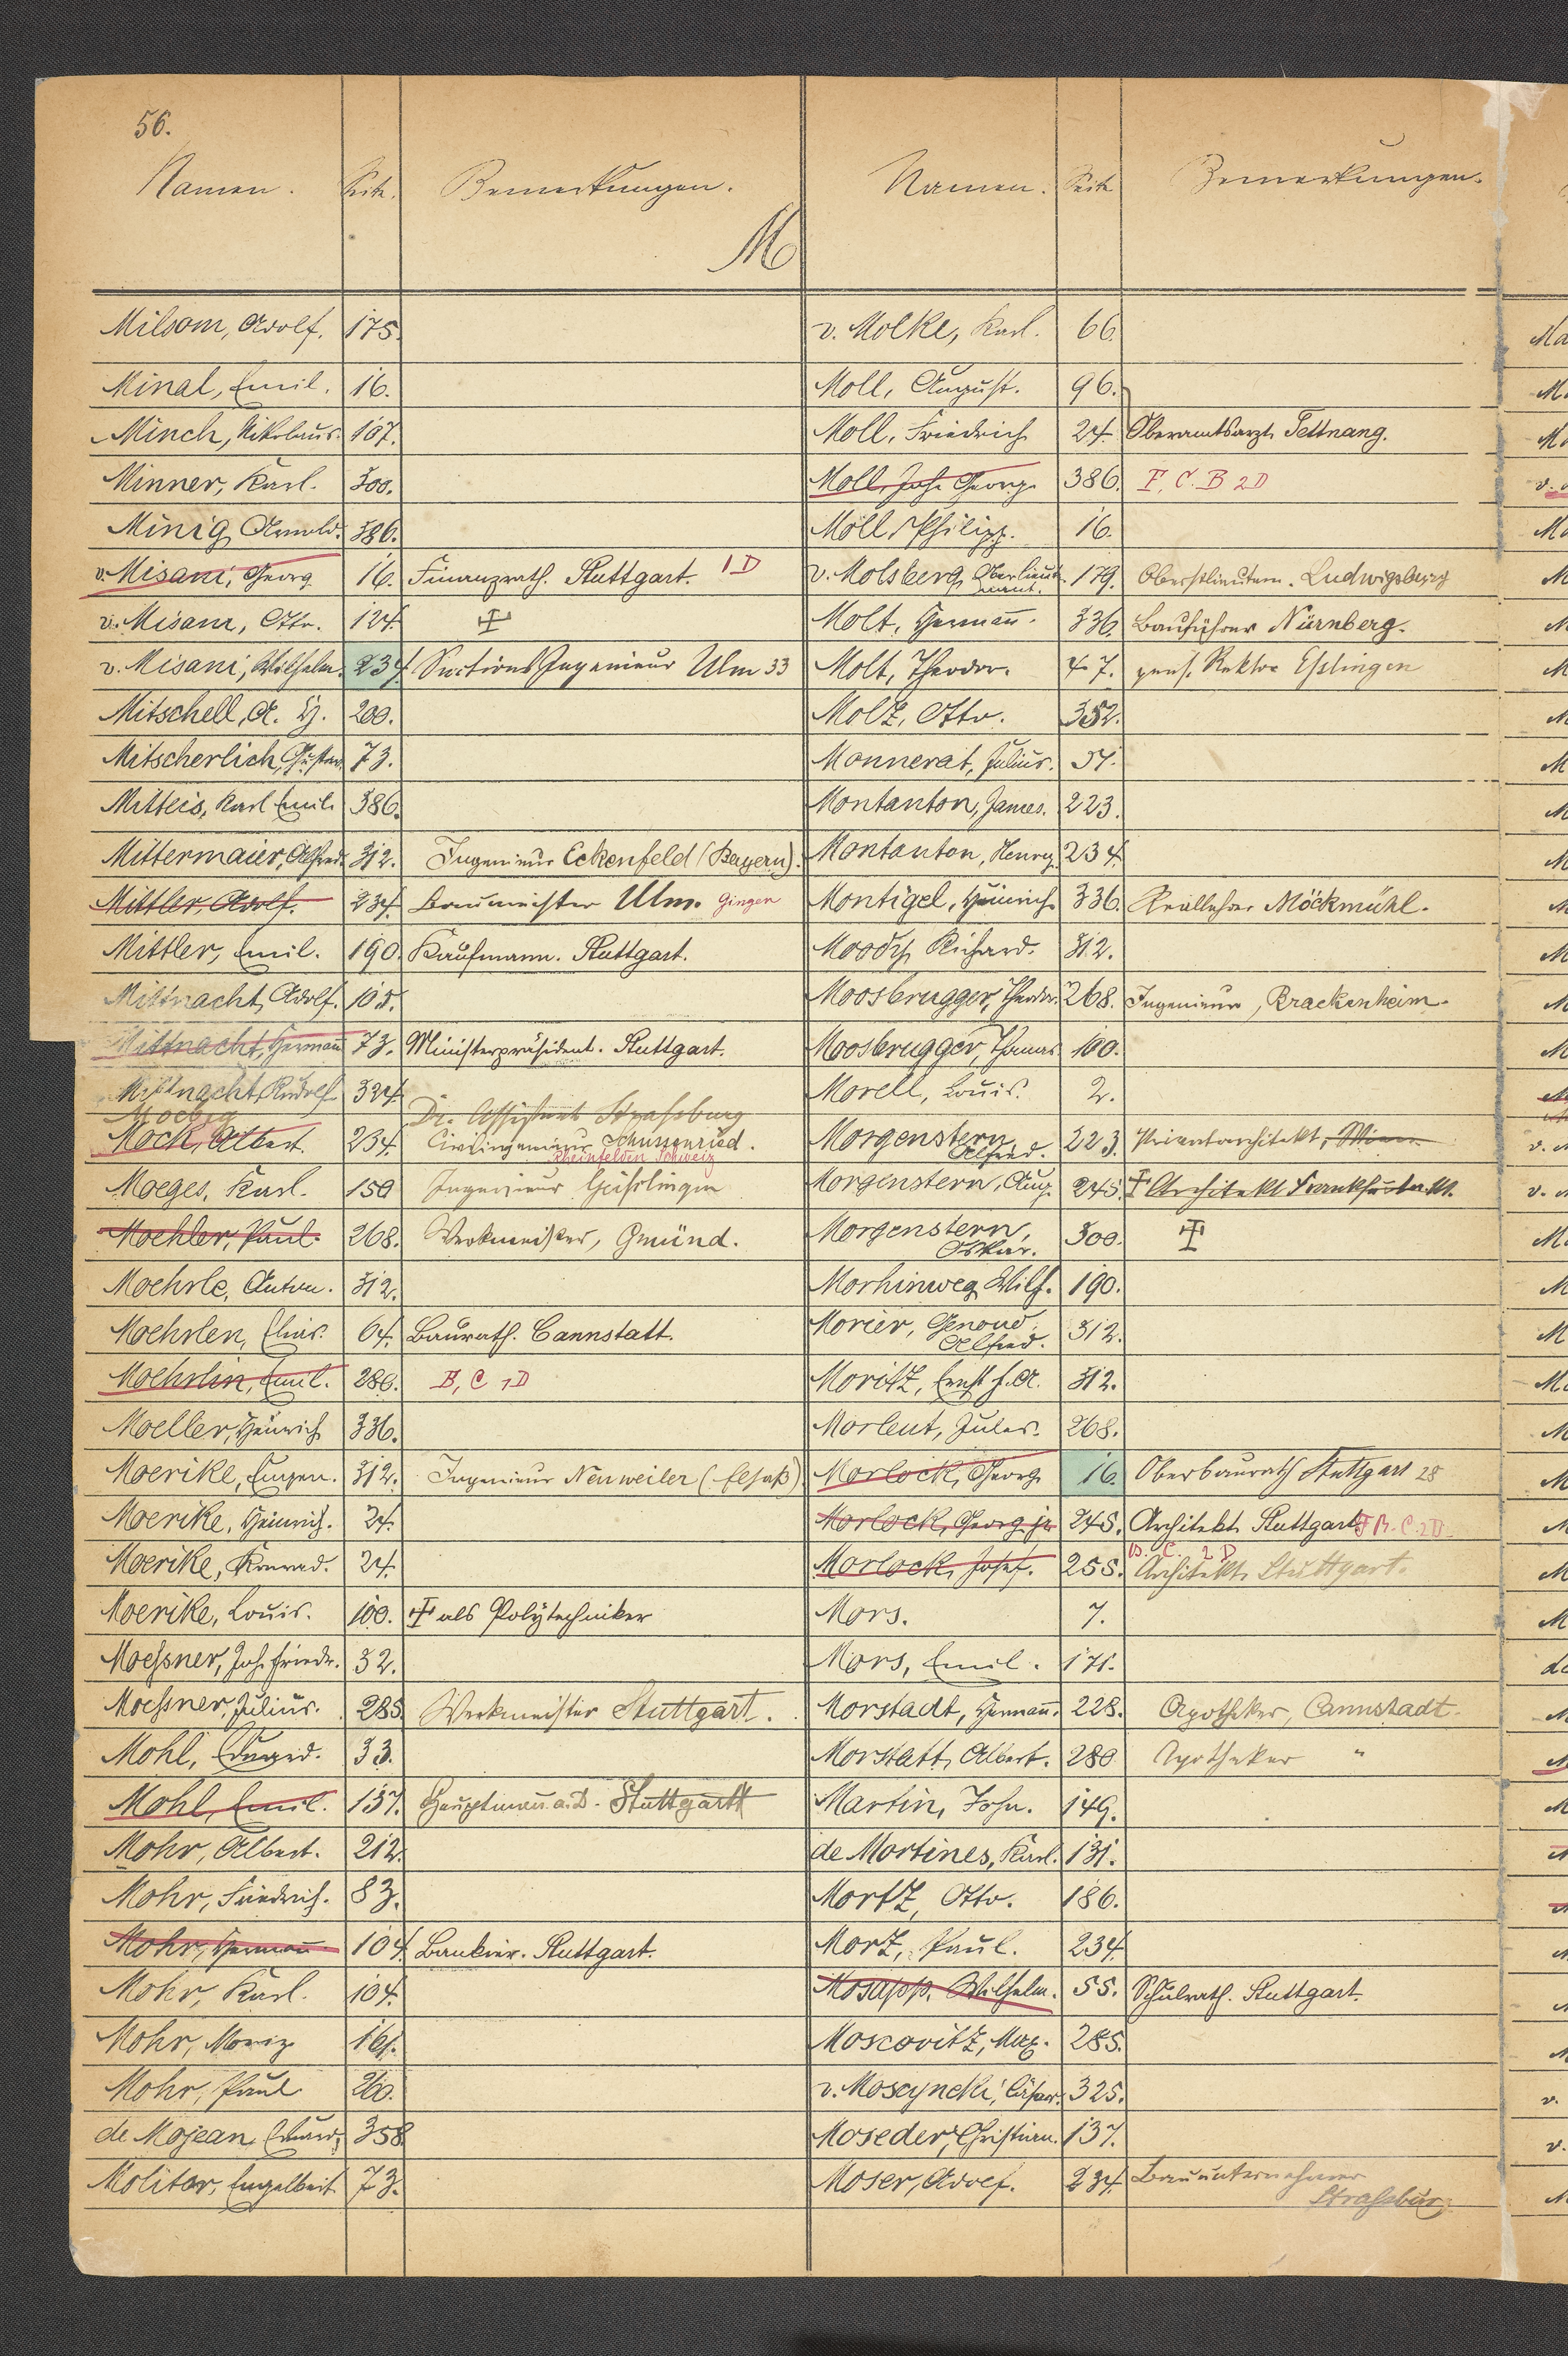 56.
Namen. Seite. Bemerkungen.
M
Milsom, Adolf. 175.
Minal, Emil. 16.
Minch, Nikolaus. 107.
Minner, Karl. 300.
Minig, Arnold. 386.
v. Misani, Georg 16. Finanzrath. Stuttgart. 1 D
v. Misani, Otto. 124.
v. Misani, Wilhelm. 234. Sections Ingenieur Ulm 33
Mitschell, A. H. 200.
Mitscherlich, Gustav. 73.
Mitteis, Karl Emil. 386.
Mittermaier, Alfred. 312. Ingenieur Eckenfeld (Bayern).
Mittler, Adolf. 234. Baumeister Ulm. Gingen
Mittler, Emil. 190. Kaufmann. Stuttgart.
Mittnacht, Adolf. 105.
Mittnacht, Hermann 73. Ministerpräsident. Stuttgart.
Mittnacht, Rudolf 324.
Moebig Dr. Assistent Strassburg
Mock, Albert. 234. Civilingenieur Schussenried.
Rheinfelden Schweiz
Moeges, Karl. 150 Ingenieur
Moehler, Paul. 268. Werkmeister, Gmünd.
Moehrle, Anton. 312.
Moehrlen, 64. Baurath. Cannstatt.
Moehrlin, Emil. 286. B, C 1 D
Moeller, Heinrich 336.
Moerike, Eugen. 312. Ingenieur Neuweiler (Elsaß)
Moerike, Heinrich. 24.
Moerike, Konrad. 24.
Moerike, Louis. 100. als Polytechniker
Moessner, Joh. Friedr. 32.
Moessner, Julius. 285. Werkmeister Stuttgart.
Mohl, Eduard. 33.
Mohl, Emil. 137. Hauptmann a. D. Stuttgart
Mohr, Albert. 212.
Mohr, Friedrich. 83.
Mohr, Hermann 104. Bankier. Stuttgart.
Mohr, Karl. 104.
Mohr, Moriz 161.
Mohr, Paul 260.
de Mojean, Eduard, 358
Molitor, Engelbert 73.
Namen. Seite Bemerkungen.
v. Molke, Karl. 66.
Moll, August. 96.
Moll, Friedrich 24. Oberamtsarzt Tettnang.
Moll, Joh. Georg. 386. F. C. B 2 D
Moll, Philipp. 16.
v. Molsberg, Oberlieut- 179. Oberstlieutn. Ludwigsburg
nant.
Molt, Hermann. 336. Bauführer Nürnberg.
Molt, Theodor. 47. pens. Rektor Esslingen
Molz, Otto. 352.
Monnerat, Julius. 54.
Montanton, James. 223.
Montanton, Henry. 234.
Montigel, Heinrich 336. Reallehrer Möckmühl.
Moody, Richard. 312.
Moosbrugger, Theodor. 268. Ingenieur, Brackenheim.
Moosbrugger, Thomas 100.
Morell, Louis. 2.
Morgenstern, 223. Privatarchitekt, Wien.
Alfred.
Morgenstern, Aug. 245. Architekt Frankfurt a. M.
Morgenstern, 300.
Oskar.
Morhinweg, Wilh. 190.
Morier, Genoud 312.
Alfred.
Moritz, Ernst f. A. 312.
Morlent, Jules. 268.
Morlock, Georg 16. Oberbaurath Stuttgart 28
Morlock, Georg jr. 245. Architekt Stuttgart F B. C. 2 D.
B. C. 2 D
Morlock, Josef. 255. Architekt Stuttgart.
Mors. 7.
Mors, Emil. 171.
Morstadt, Hermann. 228. Apotheker, Cannstadt.
Morstatt, Albert. 280 Apotheker "
Martin, John. 149.
de Mortines, Karl. 131.
Mortz, Otto. 186.
Morz, Paul. 234.
Mosapp, Wilhelm. 55. Schulrath. Stuttgart.
Moscovitz, Max. 285.
v. Moscyncki, 325.
Moseder, Christian. 137.
Moser, Adolf. 234. Bauunternehmer
Strassburg